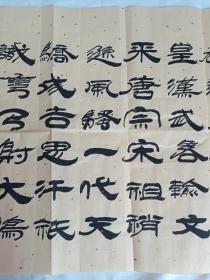 皇漢武略輸文
采唐宗宋祖稍
遜風騷一代天
驕成吉思汗祇
識彎弓射大